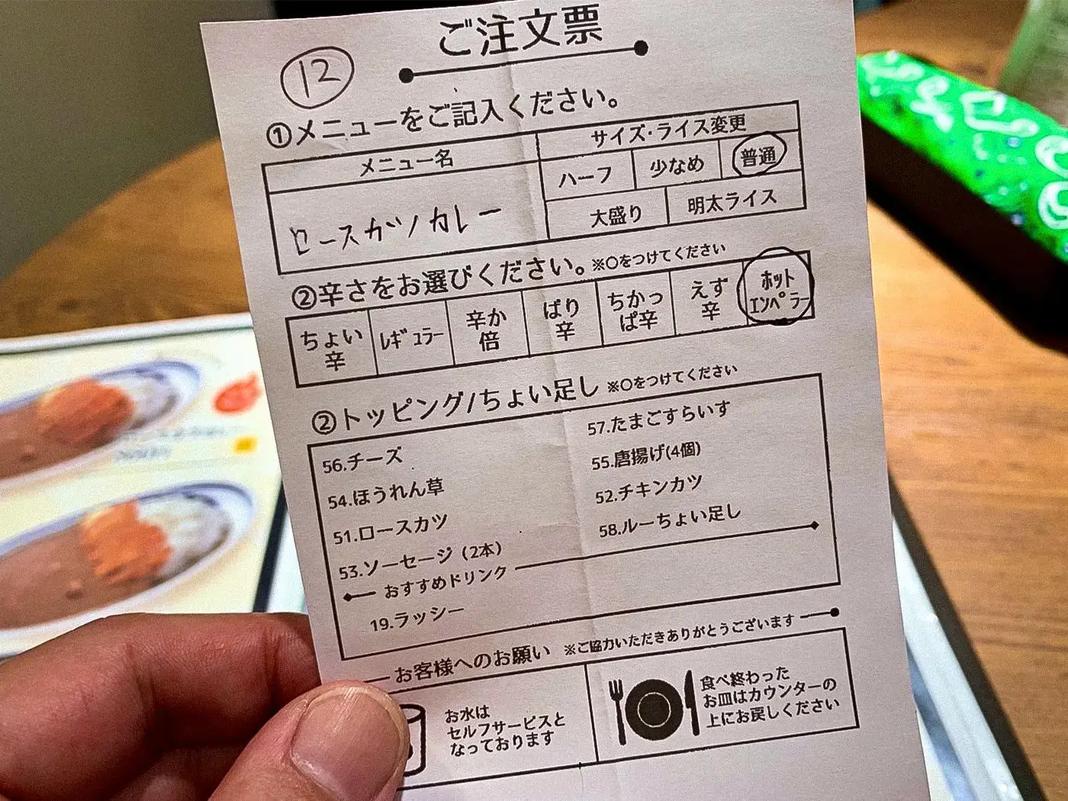 ご注文票
12
①メニューをご記入ください。
メニュー名
サイズ・ライス変更
ロースカツカレー
ハーフ
少なめ
普通
大盛り
明太ライス
②辛さをお選びください。※○をつけてください
ちょい辛
レギュラー
辛か倍
ばり辛
ちかっぱ辛
えず辛
ホットエンペラー
②トッピング/ちょい足し ※○をつけてください
56.チーズ
57.たまごすらいす
54.ほうれん草
55.唐揚げ(4個)
51.ロースカツ
52.チキンカツ
53.ソーセージ（2本）
58.ルーちょい足し
おすすめドリンク
19.ラッシー
お客様へのお願い ※ご協力いただきありがとうございます
お水は
セルフサービスと
なっております
食べ終わった
お皿はカウンターの
上にお戻しください